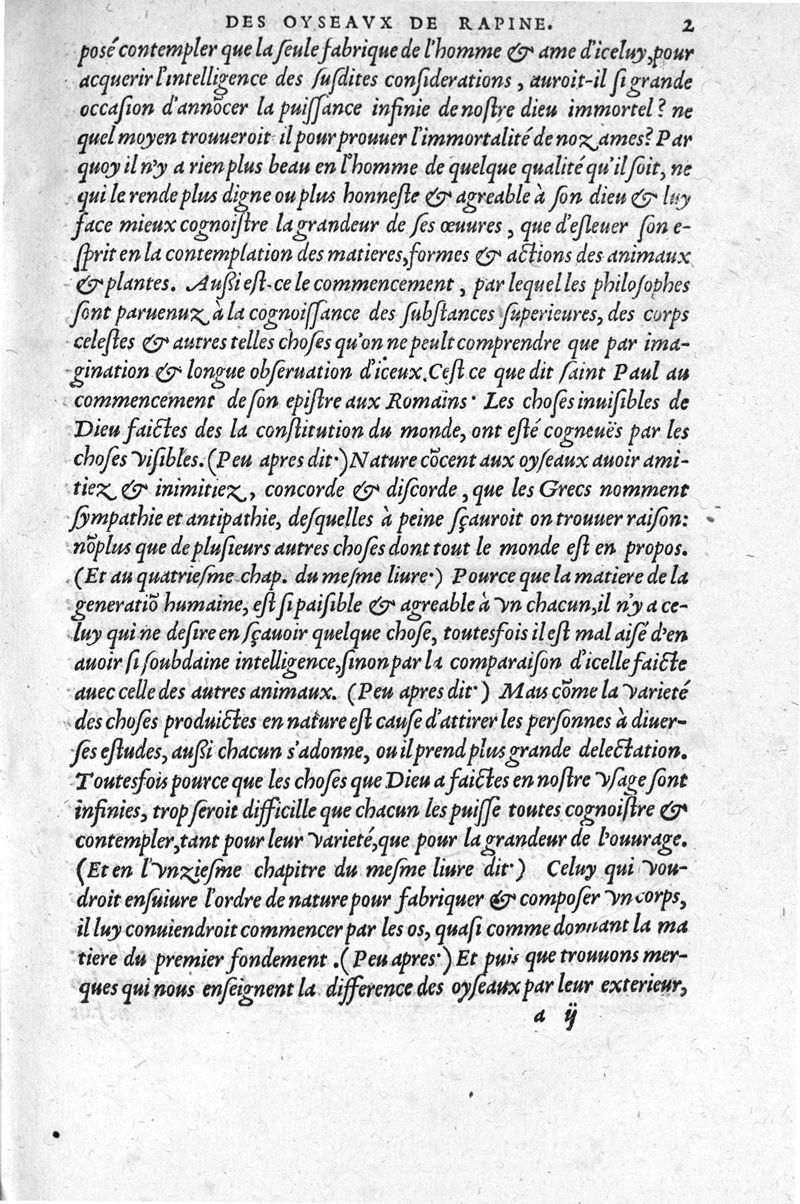 DES OYSEAVX DE RAPINE. 2
posé contempler que la ſeule fabrique de l'homme & ame d'iceluy, pour
acquerir l'intelligence des ſuſdites conſiderations, auroit-il ſi grande
occaſion d'annõcer la puiſſance infinie de noſtre dieu immortel? ne
quel moyen trouueroit il pour prouuer l'immortalité de noz ames? Par
quoy il n'y a rien plus beau en l'homme de quelque qualité qu'il ſoit, ne
qui le rende plus digne ou plus honneſte & agreable à ſon dieu & luy
face mieux cognoiſtre la grandeur de ſes œuures, que d'eſleuer ſon e-
ſprit en la contemplation des matieres, formes & actions des animaux
& plantes. Außi eſt-ce le commencement, par lequel les philoſophes
ſont paruenuz à la cognoiſſance des ſubſtances ſuperieures, des corps
celeſtes & autres telles choſes qu'on ne peult comprendre que par ima-
gination & longue obſeruation d'iceux. Ceſt ce que dit ſaint Paul au
commencement de ſon epiſtre aux Romains· Les choſes inuiſibles de
Dieu faictes des la conſtitution du monde, ont eſté cogneuës par les
choſes viſibles. (Peu apres dit·) Nature cõcent aux oyſeaux auoir ami-
tiez & inimitiez, concorde & diſcorde, que les Grecs nomment
ſympathie et antipathie, deſquelles à peine ſçauroit on trouuer raiſon:
nõplus que de pluſieurs autres choſes dont tout le monde eſt en propos.
(Et au quatrieſme chap. du meſme liure·) Pource que la matiere de la
generatiõ humaine, eſt ſi paiſible & agreable à vn chacun, il n'y a ce-
luy qui ne deſire en ſçauoir quelque choſe, toutesfois il eſt mal aiſé d'en
auoir ſi ſoubdaine intelligence, ſinon par la comparaiſon d'icelle faicte
auec celle des autres animaux. (Peu apres dit·) Mais cõme la varieté
des choſes produictes en nature eſt cauſe d'attirer les perſonnes à diuer-
ſes eſtudes, außi chacun s'adonne, ou il prend plus grande delectation.
Toutesfois pource que les choſes que Dieu a faictes en noſtre vſage ſont
infinies, trop ſeroit difficille que chacun les puiſſe toutes cognoiſtre &
contempler, tant pour leur varieté, que pour la grandeur de l'ouurage.
(Et en l'vnzieſme chapitre du meſme liure dit·) Celuy qui vou-
droit enſuiure l'ordre de nature pour fabriquer & compoſer vn corps,
il luy conuiendroit commencer par les os, quaſi comme donnant la ma
tiere du premier fondement. (Peu apres·) Et puis que trouuons mer-
ques qui nous enſeignent la difference des oyſeaux par leur exterieur,
a ij